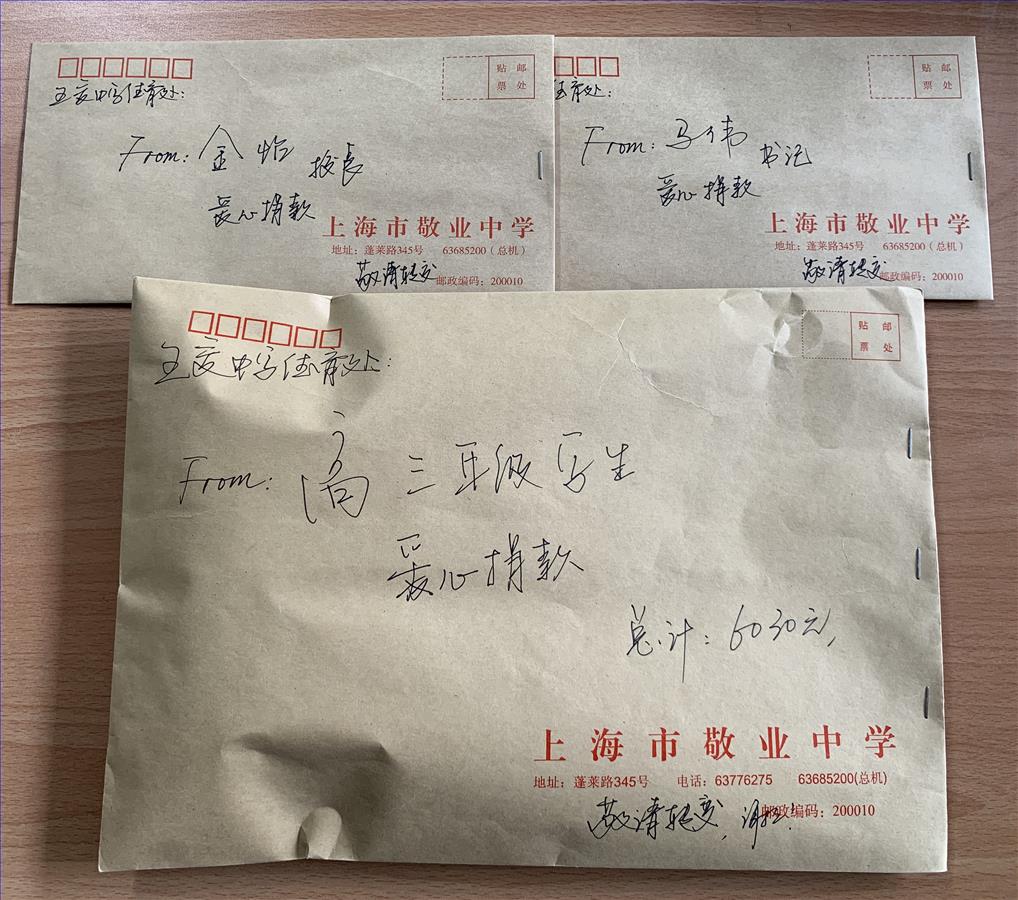 五爱中学德育处:
贴 邮
票 处
From: 金怡 校长
爱心捐款
上海市敬业中学
地址：蓬莱路345号 63685200（总机）
敬请转交 邮政编码：200010
德育处:
贴 邮
票 处
From: 马伟 书记
爱心捐款
上海市敬业中学
地址：蓬莱路345号 63685200（总机）
敬请转交 邮政编码：200010
五爱中学德育处:
贴 邮
票 处
From: 高三年级学生
爱心捐款
总计: 6030元,
上海市敬业中学
地址：蓬莱路345号 电话：63776275 63685200(总机)
敬请转交, 谢谢! 邮政编码：200010